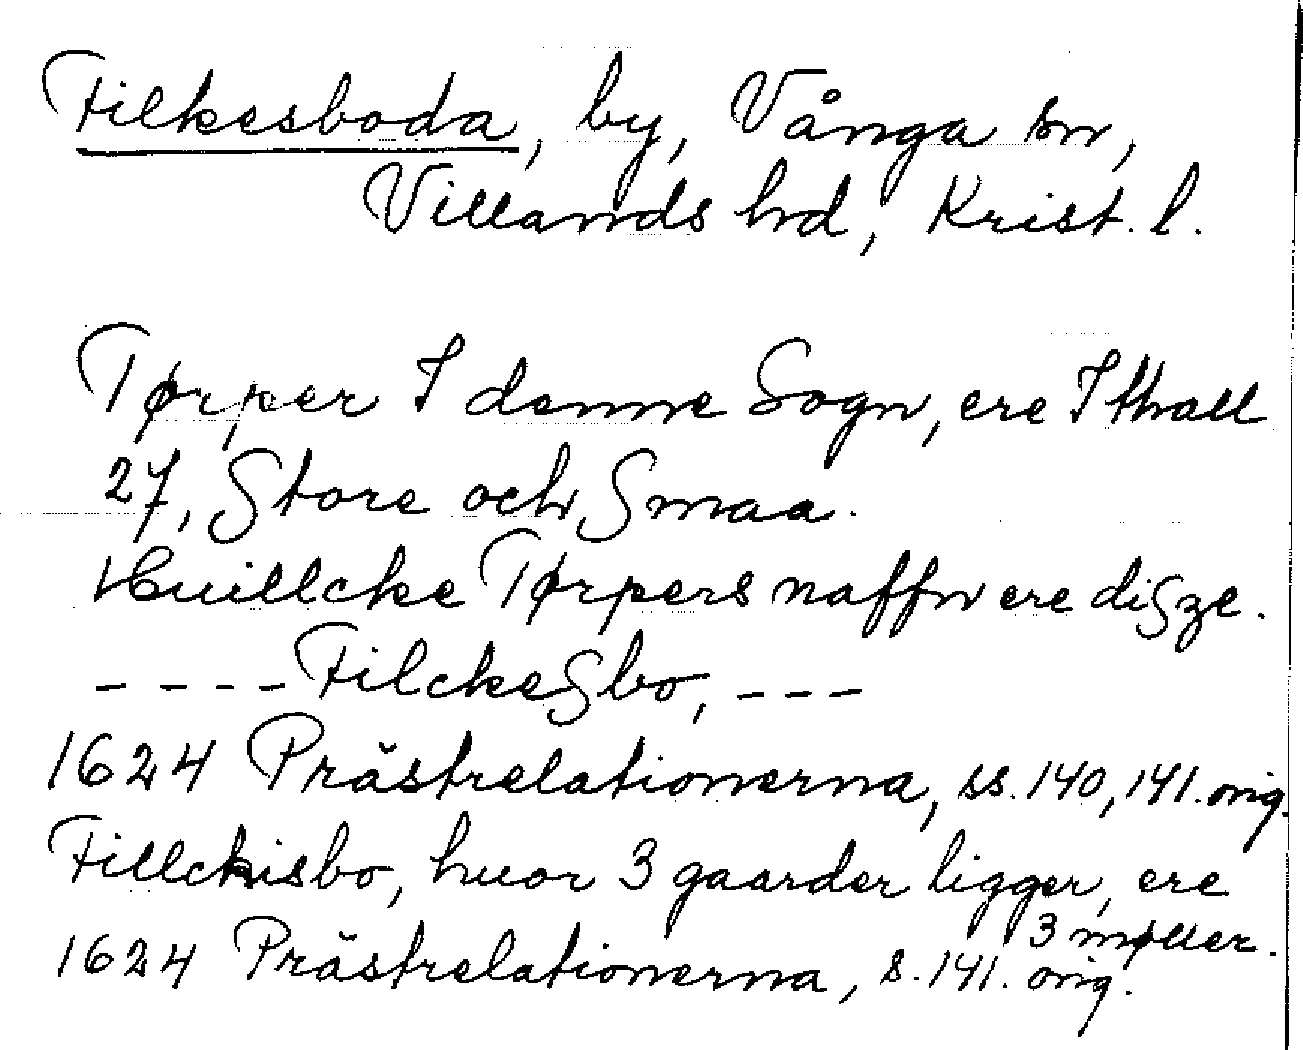 Filkesboda, by, Vånga sn,
Villands hd, Krist. l.
Tørper I denne Sogn, ere I thall
27, Store och Smaa.
Huillcke Tørpers naffn ere disze.
---- Filckesbo, ---
1624 Prästrelationerna, ss. 140, 141. orig.
Fillckisbo, huor 3 gaarder ligger, ere
3 møller.
1624 Prästrelationerna, s. 141. orig.